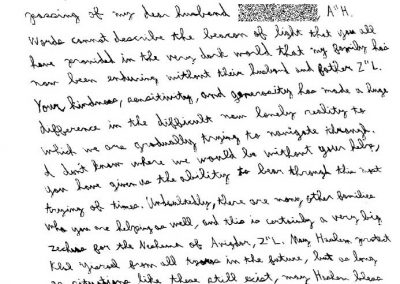 passing of my dear husband A"H.
Words cannot describe the beacon of light that you all
have provided in the very dark world that my family has
now been enduring without their husband and father Z"L.
Your kindness, sensitivity, and generosity has made a huge
difference in the difficult new lonely reality to
which we are gradually trying to navigate through.
I don't know where we would be without your help,
you have given us the ability to bear through the most
trying of times. Undoubtedly, there are many other families
who you are helping as well, and this is certainly a very big
zechus for the Neshama of Avigdor, Z"L. May Hashem protect
Klal Yisroel from all in the future, but as long
as situations like these still exist, may Hashem bless